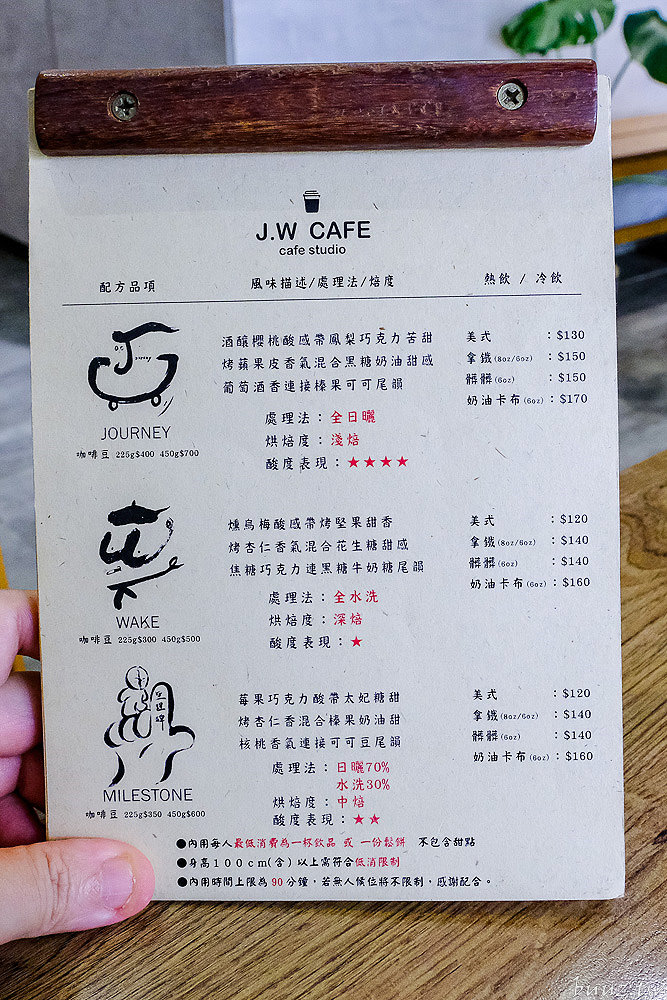 J.W CAFE
cafe studio
配方品項 風味描述/處理法/焙度 熱飲 / 冷飲
JOURNEY
咖啡豆 225g$400 450g$700
酒釀櫻桃酸感帶鳳梨巧克力苦甜
烤蘋果皮香氣混合黑糖奶油甜感
葡萄酒香連接榛果可可尾韻
處理法：全日曬
烘焙度：淺焙
酸度表現：★★★★
美式 ：$130
拿鐵(8oz/6oz) ：$150
髒髒(6oz) ：$150
奶油卡布(6oz)：$170
WAKE
咖啡豆 225g$300 450g$500
燻烏梅酸感帶烤堅果甜香
烤杏仁香氣混合花生糖甜感
焦糖巧克力連黑糖牛奶糖尾韻
處理法：全水洗
烘焙度：深焙
酸度表現：★
美式 ：$120
拿鐵(8oz/6oz) ：$140
髒髒(6oz) ：$140
奶油卡布(6oz)：$160
里程碑
MILESTONE
咖啡豆 225g$350 450g$600
莓果巧克力酸帶太妃糖甜
烤杏仁香混合榛果奶油甜
核桃香氣連接可可豆尾韻
處理法：日曬70%
水洗30%
烘焙度：中焙
酸度表現：★★
美式 ：$120
拿鐵(8oz/6oz) ：$140
髒髒(6oz) ：$140
奶油卡布(6oz)：$160
●內用每人最低消費為一杯飲品 或 一份鬆餅 不包含甜點
●身高100cm(含)以上需符合低消限制
●內用時間上限為90分鐘，若無人候位將不限制，感謝配合。